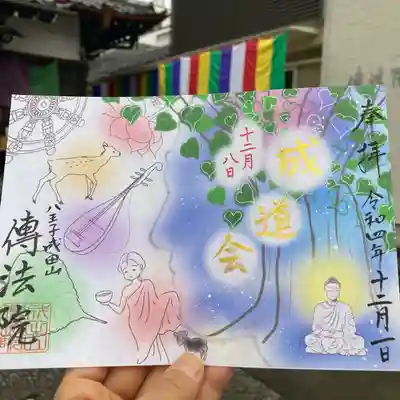 奉拝 令和四年十二月一日
十二月
八日
成道会
八王子成田山
傳法院